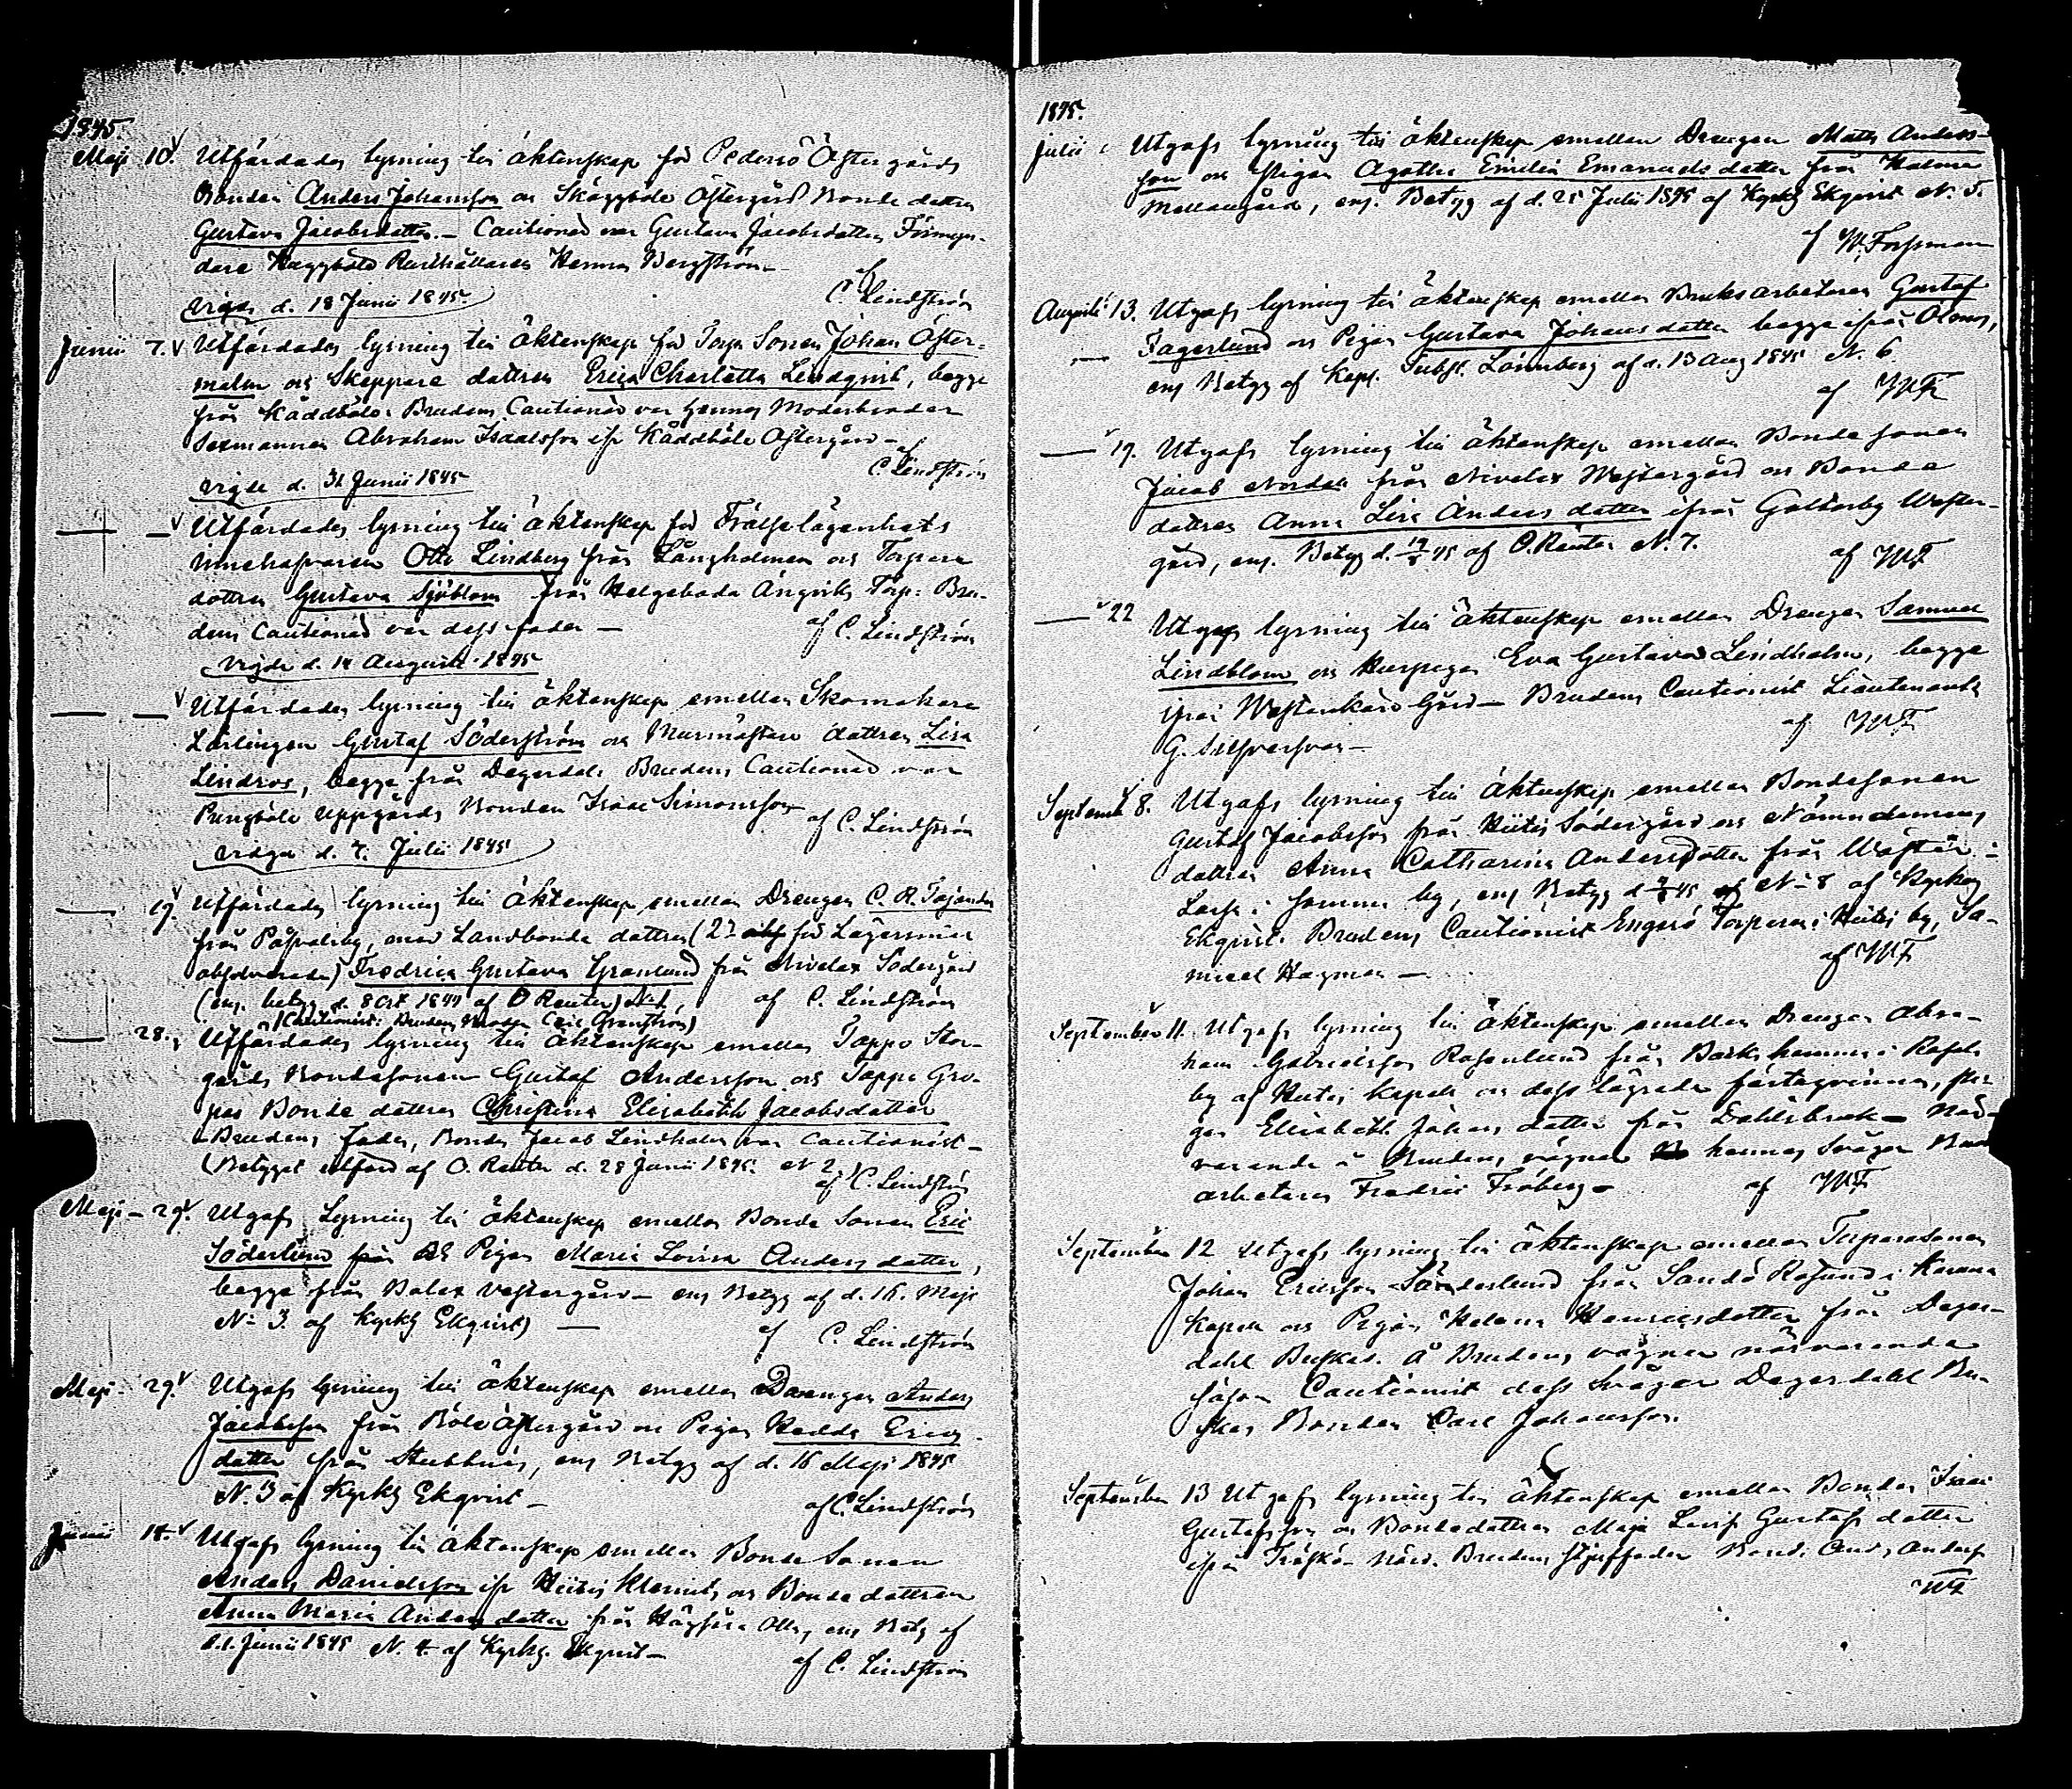 1845.
Maji 10. Utfärdades lysning till äktenskap för Pedersö Östergårds
Bonden Anders Johansson och Skäggböle Östergård Bonde dottren
Gustava Jacobsdotter. — Cautionist var Gustava Jacobsdotters Förmyn-
dare Rusthållaren Bergström —
vigde d. 18 Junii 1845. af C. Lindström
Junii 7. Utfärdades lysning till äktenskap för Torp Sonen Johan Öster-
malm och Skeppare dottren Erica Charlotta Lindqvist, begge
från Käddböle. Brudens Cautionist var hennes Moderbroder
Sexmannen Abraham Isaksson ifr Käddböle Östergård —
vigde d. 31 Junii 1845 af C. Lindström
— — Utfärdades lysning till äktenskap för Frälselägenhets
Innehafvaren Otto Lindberg från Långholmen och Torpare
dottren Gustava Sjöblom från Helgeboda Ängviks Torp. Bru-
dens Cautionist var dess fader — af C. Lindström
vigde d. 14 Augusti 1845
— — Utfärdades lysning till äktenskap emellan Skomakare
Lärlingen Gustaf Söderström och Murmästare dottren Lisa
Lindros, begge från Dagerdal. Brudens Cautionist var
Pungböle Uppgårds Bonden Isaac Simonsson af C. Lindström
vigde d. 7. Julii 1845
— 19. Utfärdades lysning till äktenskap emellan Drengen C. R.
från Påfvalsby, med Landbonde dottren (2 för Lägersmål
absolverade) Fredrica Gustava Granlund från Nivelax Södergård
(enl. betyg d. 8 Oct. 1844 af O Reuter) N. 1, af C. Lindström
(Cautionist: Brudens Carl Granström)
— 28. Utfärdades lysning till äktenskap emellan Tappo Stor-
gårds Bondesonen Gustaf Andersson och Tappo Gro-
pas Bonde dottren Christina Elisabeth Jacobsdotter
Brudens Fader, Bonden Jacob Lindholm var Cautionist —
(Betyget utfärd af O. Reuter d. 28 Junii 1845. N 2.) af C. Lindström
Maji — 29. Utgafs Lysning till äktenskap emellan Bonde Sonen Eric
Söderlund från och Pigan Maria Lovisa Andersdotter,
begge från Dalex Vestergård — enl Betyg af d. 16. Maji
N: 3. af Kyrkh Ekqvist) — af C. Lindström
Maji — 29. Utgafs lysning till äktenskap emellan Drengen Anders
Jacobsson från Böle Östergård och Pigan Hedda Erics-
dotter från Stubbnäs, enl Betyg af d. 16 Maji 1845
N. 3 af Kyrkh Ekqvist — af C. Lindström
Junii 14. Utgafs lysning till äktenskap emellan Bonde Sonen
Anders Danielsson ifr Hiitis Klemets och Bonde dottren
Anna Maria Andersdotter från Högsåra Olls, enl Betg af
d. 1. Junii 1845 N. 4. af Kyrkh. Ekqvist — af C. Lindström
1845.
Julii Utgafs lysning till äktenskap emellan Drengen Mats Anders-
son och Pigan Agatha Emilia Emanuelsdotter från Holma
Mellangård, enl. Betyg af d. 25 Julii 1845 af Kyrkh Ekqvist N. 5.
af W. Forssman
Augusti 13. Utgafs lysning till äktenskap emellan Bruksarbetaren Gustaf
Fagerlund och Pigan Gustava Johansdotter begge ifrån Olmos,
enl Betyg af Kapl. Subst. Lönnberg af d. 13 Aug 1845 N. 6
af WF
— 19. Utgafs lysning till äktenskap emellan Bondesonen
Jacob Nordell från Nivelax Westergård och Bonde
dottren Anna Lisa Andersdotter ifrån Galtarby Wester-
gård, enl. Betyg d. 19/8 45 af O. Reuter N. 7.
af WF
— 22 Utgafs lysning till äktenskap emellan Drengen Samuel
Lindblom och Huspigan Eva Gustava Lindholm, begge
ifrån Westankärr Gård — Brudens Cautionist Lieutenants
G. Silfversvan — af WF
Septemb 8. Utgafs lysning till äktenskap emellan Bondesonen
Gustaf Jacobsson från Hiitis Södergård och Nämndemans
dottren Anna Catharina Andersdotter från Wester
Lars i samma by, enl Betyg d 45 N: 8 af Kyrkoh
Ekqvist. Brudens Cautionist Engsö Torparen i Hiitis by, Sa-
muel Hagman — af WF
September 11. Utgafs lysning till äktenskap emellan Drengen Abra-
ham Gabrielsson Rosenlund från i Rosala
by af Hiitis Kapell och dess lägrade fästeqvinna, Pi-
gan Elisabeth Johansdotter från Dahlsbruk — När-
varande å Brudens vägnar hennes Svåger
arbetaren Fredric Fröberg — af WF
September 12 Utgafs lysning till äktenskap emellan Torparesonen
Johan Ericsson Sönderlund från Sandö i Karuna
Kapell och Pigan Helena Henricsdotter från Dager-
dahl Buskas. Å Brudens vägnar närvarande
såsom Cautionist dess Svåger Dagerdahl Bu-
skas Bonden Carl Johansson.
September 13 Utgafs lysning till äktenskap emellan Bonden Isaac
Gustafsson och Bondedottren Maja Lovis Gustafsdotter
ifrån Tröskö — Närv. Brudens styffader Bond. And. Anders
WF